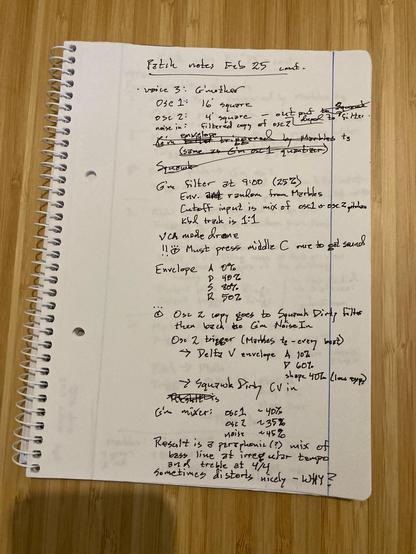 Patch notes Feb 25 cont.
· voice 3: G'mother
Osc 1: 16' square
Osc 2: 4' square - out put to Squawk
noise in: filtered copy of osc 2 dirty filter
envelope
triggered by Marbles t3
(same as G'm osc 1 quantizer)
Squawk
G'm filter at 9:00 (25%)
Env. random from Marbles
Cutoff input is mix of osc1 or osc2 pitches
Kbd track is 1:1
VCA mode drone
!! Must press middle C once to get sound
Envelope A 0%
D 40%
S 80%
R 50%
Osc 2 copy goes to Squawk Dirty Filter
then back to G'm Noise In
Osc 2 trigger (Marbles t2 - every beat)
→ Delta V envelope A 10%
D 60%
shape 40% (
→ Squawk Dirty CV in
Result is
G'm mixer: osc1 ~40%
osc2 ~35%
noise ~45%
Result is a paraphonic(?) mix of
bass line at irregular tempo
and treble at 4/4
Sometimes distorts nicely - WHY?